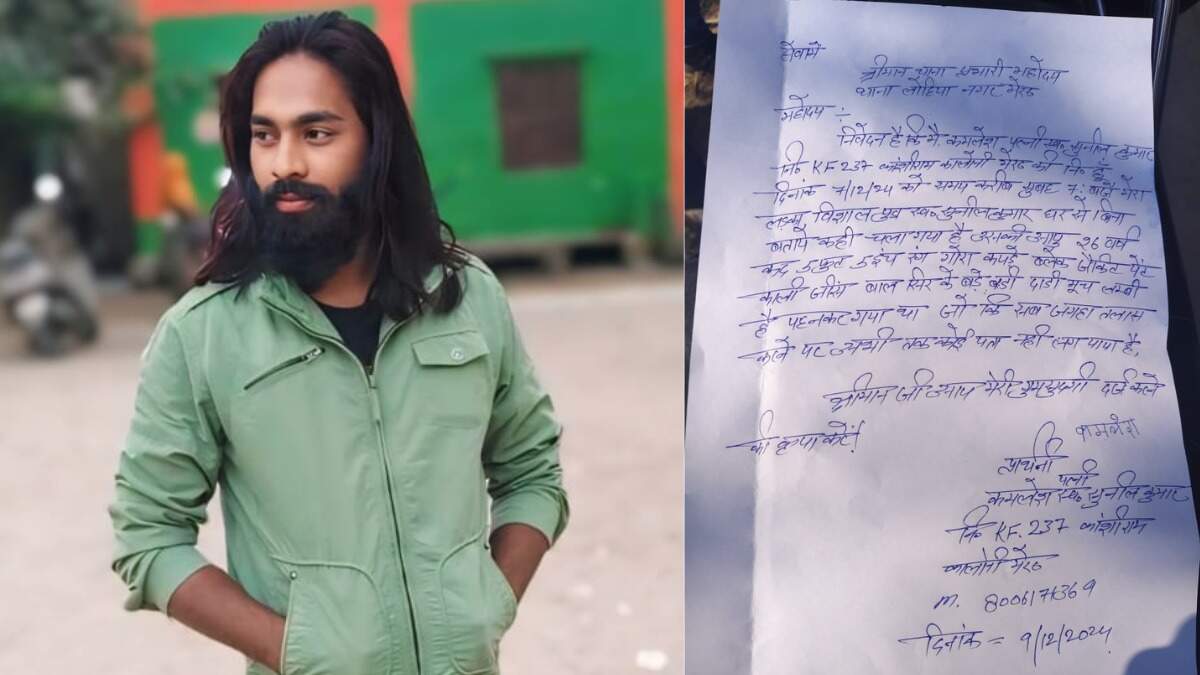 सेवामें
श्रीमान थाना प्रभारी महोदय
थाना लोहिया नगर मेरठ
महोदय :
निवेदन है कि मै कमलेश पत्नी स्व. सुनील कुमार
नि० KF 237 कांशीराम कालोनी मेरठ की नि० हूं
दिनांक 7/12/24 को समय करीब सुबह 7: बजे मेरा
लड़का विशाल पुत्र स्व. सुनील कुमार घर से बिना
बताये कही चला गया है उसकी आयु 26 वर्ष
कद 5 फुट 5 इंच रंग गोरा कपड़े ब्लैक जैकिट पेंट
काली जींस बाल सिर के बड़े बड़ी दाडी मूंच लम्बी
है पहनकर गया था जो कि सब जगहा तलास
करने पर अभी तक कोई पता नही लग पाया है,
श्रीमान जी आप मेरी गुमशुदगी दर्ज करने
की कृपा करें!
कमलेश
प्रार्थनी
पत्नी
कमलेश स्व. सुनील कुमार
नि० KF. 237 कांशीराम
कालोनी मेरठ
m.
दिनांक = 9/12/2024